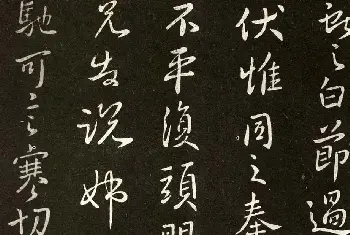 之白節過
伏惟同之奉
不平復頭
兄告說姊
馳可言寒切